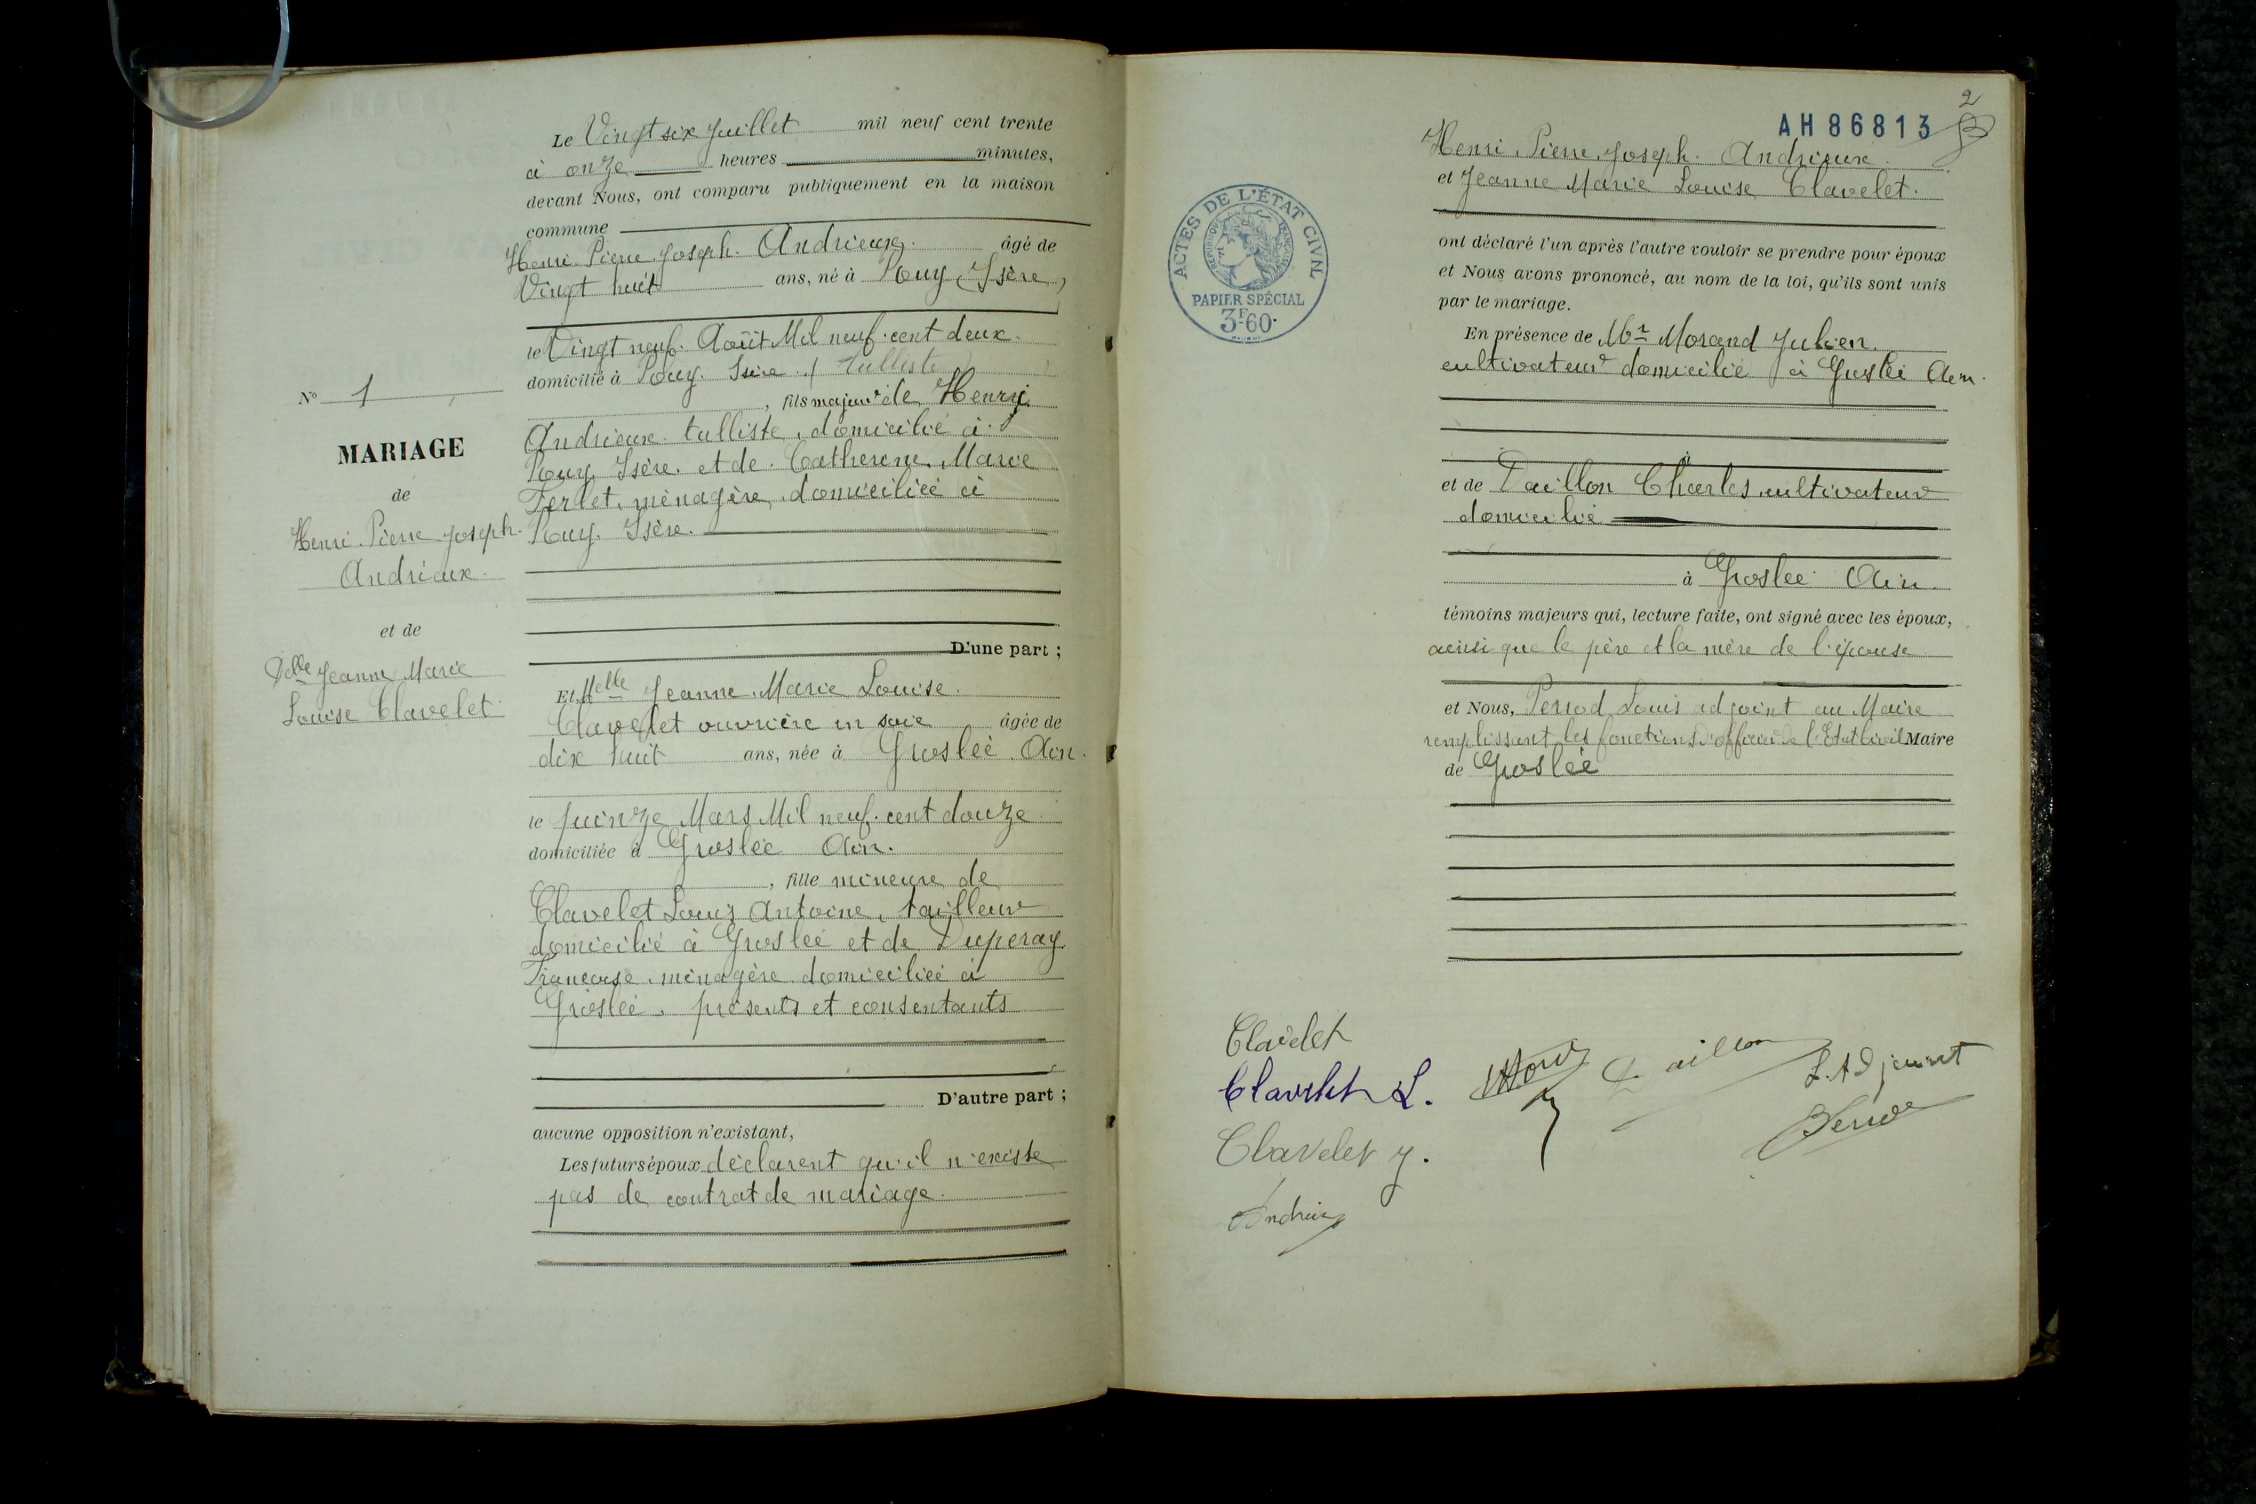 Le Vingt six Juillet mil neuf cent trente
à onze heures minutes,
devant Nous, ont comparu publiquement en la maison
commune
Henri Pierre Joseph. Andrieux. âgé de
Vingt huit ans, né à Ruy (Isère)
le Vingt neuf. Août Mil neuf. cent deux.
domicilié à Ruy. Isère. (Tulliste)
, fils majeur de Henri
Andrieux. tulliste, domicilié à.
Ruy. Isère. et de. Catherine. Marie
Ferlet, ménagère, domiciliée à
Ruy. Isère.
D'une part ;
Et, Melle Jeanne. Marie Louise.
Clavelet ouvrière en soie âgée de
dix huit ans, née à Groslée. Ain.
le quinze Mars Mil neuf. cent douze.
domiciliée à Groslée Ain.
, fille mineure de
Clavelet Louis Antoine, tailleur
domicilié à Groslée et de Duperay
Françoise. ménagère domiciliée à
Groslée. présents et consentants
D'autre part ;
aucune opposition n'existant,
Les futurs époux déclarent qu'il n'existe
pas de contrat de mariage.
N° 1
MARIAGE
de
Henri. Pierre Joseph.
Andrieux.
et de
Delle Jeanne Marie
Louise Clavelet
2
AH 86813
ACTES DE L'ÉTAT CIVIL
RÉPUBLIQUE FRANÇAISE
PAPIER SPÉCIAL
3F60
Henri. Pierre. Joseph. Andrieux.
et Jeanne Marie Louise Clavelet.
ont déclaré l'un après l'autre vouloir se prendre pour époux
et Nous avons prononcé, au nom de la loi, qu'ils sont unis
par le mariage.
En présence de Mr Morand Julien.
cultivateur domicilié à Groslée Ain.
et de Daillon Charles, cultivateur
domicilié
à Groslée Ain.
témoins majeurs qui, lecture faite, ont signé avec les époux,
ainsi que le père et la mère de l'épouse
et Nous, Period Louis adjoint au Maire
remplissant les fonctions d'officier de l'Etat Civil Maire
de Groslée
Clavelet
Clavelet L.
Clavelet J.
Andrieux
Daillon
L. Adjoint
Period